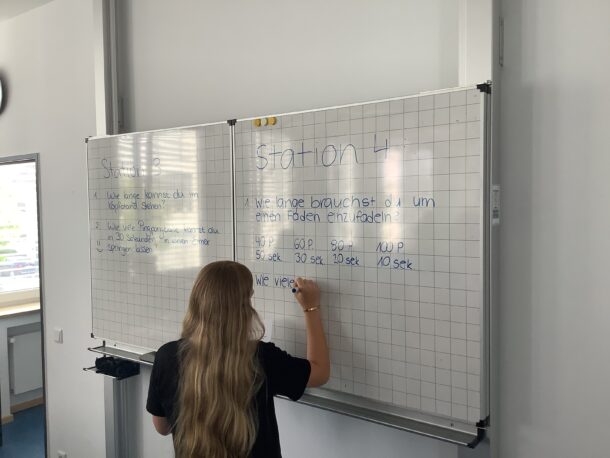 Station 3
1. Wie lange kannst du im
Kopfstand stehen?
2. Wie viele Pingpongbälle kannst du
in 30 Sekunden, in einen Eimer
springen lassen
Station 4
1. Wie lange brauchst du um
einen Faden einzufädeln?
40 P. 60 P. 80 P. 100 P.
50 sek. 30 sek. 20 sek. 10 sek.
Wie viele